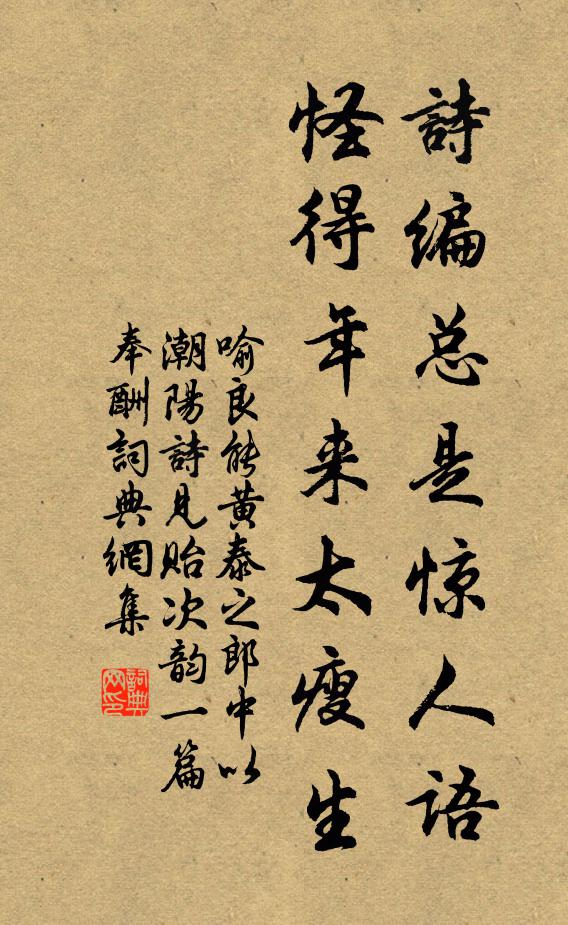 詩编总是惊人语
怪得年来太瘦生
喻良能黄泰之郎中以
潮陽詩見贻次韵一篇
奉酬詞典網集
詞典网印